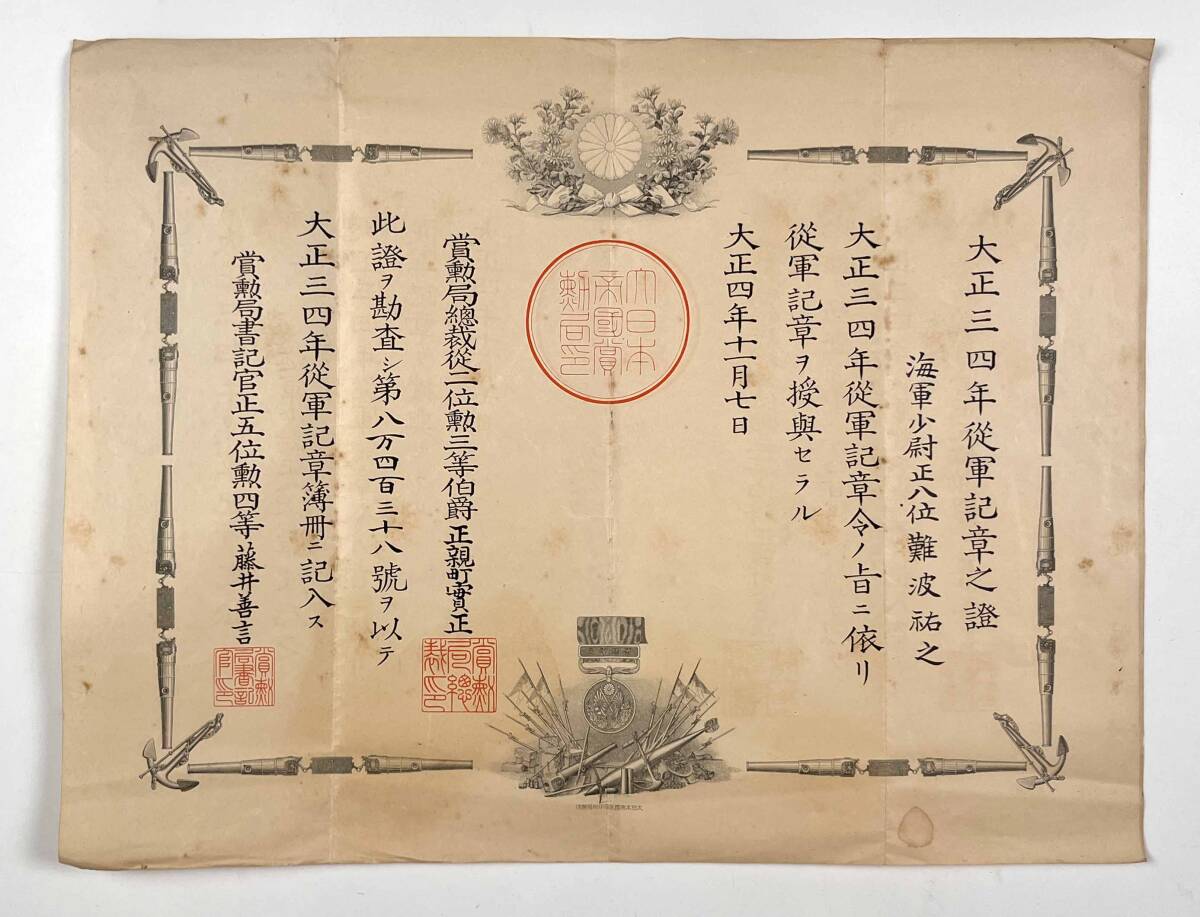 大正三四年從軍記章之證
海軍少尉正八位難波祐之
大正三四年從軍記章令ノ旨ニ依リ
從軍記章ヲ授與セラル
大正四年十一月七日
大日本
帝國賞
勲局印
賞勲局總裁從二位勲三等伯爵正親町實正
賞勲
局總
裁印
此證ヲ勘査シ第八万四百三十八號ヲ以テ
大正三四年從軍記章簿冊ニ記入ス
賞勲局書記官正五位勲四等藤井善言
賞勲
局書記
官印